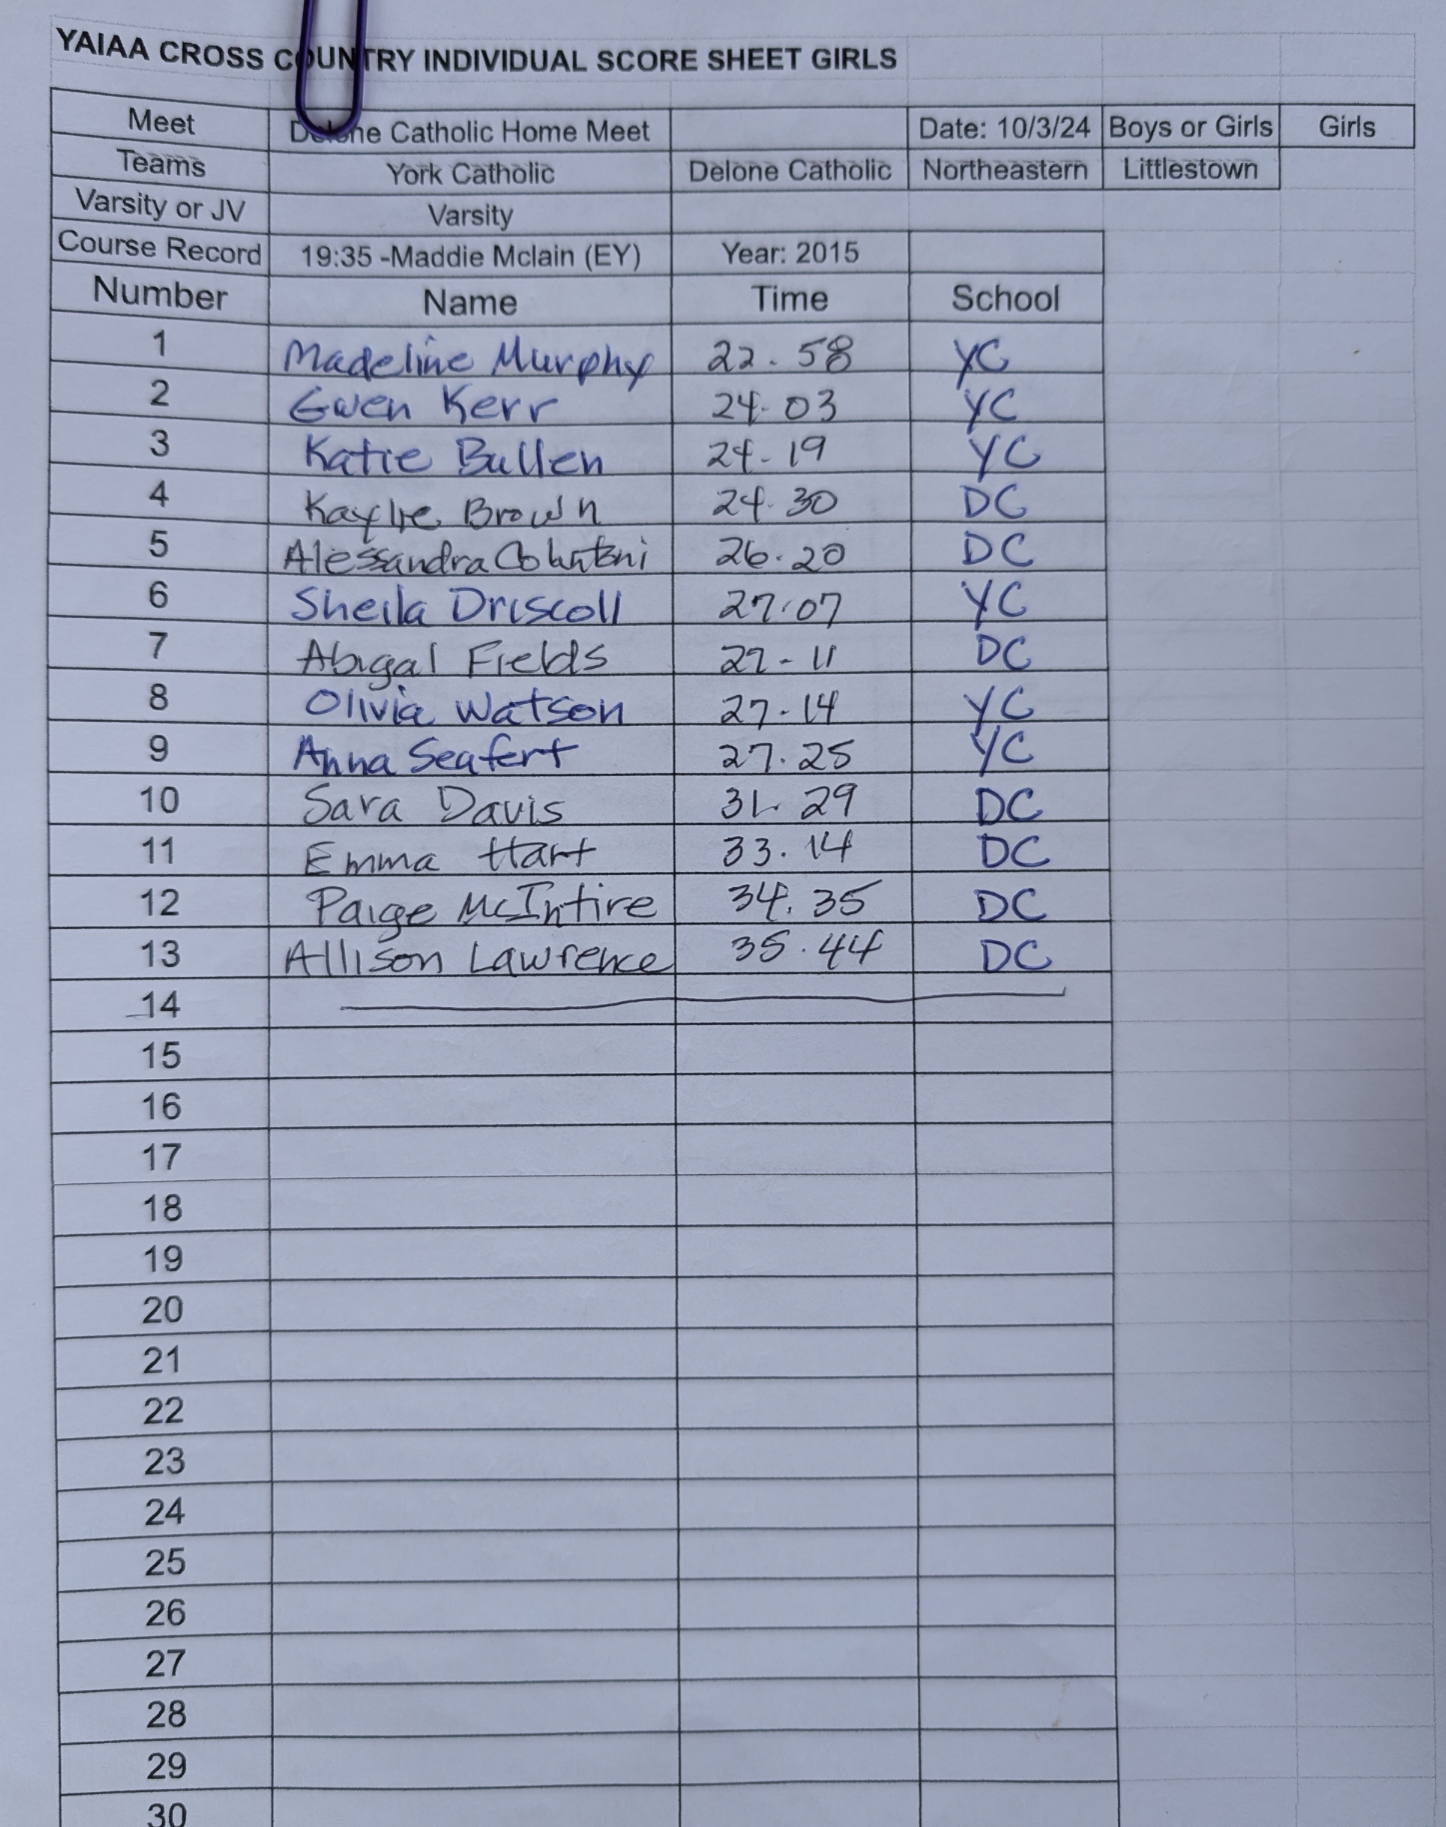 YAIAA CROSS COUNTRY INDIVIDUAL SCORE SHEET GIRLS
Meet Delone Catholic Home Meet Date: 10/3/24 Boys or Girls Girls
Teams York Catholic Delone Catholic Northeastern Littlestown
Varsity or JV Varsity
Course Record 19:35 -Maddie Mclain (EY) Year: 2015
Number Name Time School
1 Madeline Murphy 22.58 YC
2 Gwen Kerr 24.03 YC
3 Katie Bullen 24-19 YC
4 Kaylie Brown 24.30 DC
5 Alessandra 26.20 DC
6 Sheila Driscoll 27.07 YC
7 Abigal Fields 27-11 DC
8 Olivia Watson 27-14 YC
9 Anna Seafert 27.25 YC
10 Sara Davis 31.29 DC
11 Emma Hart 33.14 DC
12 Paige McIntire 34.35 DC
13 Allison Lawrence 35.44 DC
14
15
16
17
18
19
20
21
22
23
24
25
26
27
28
29
30